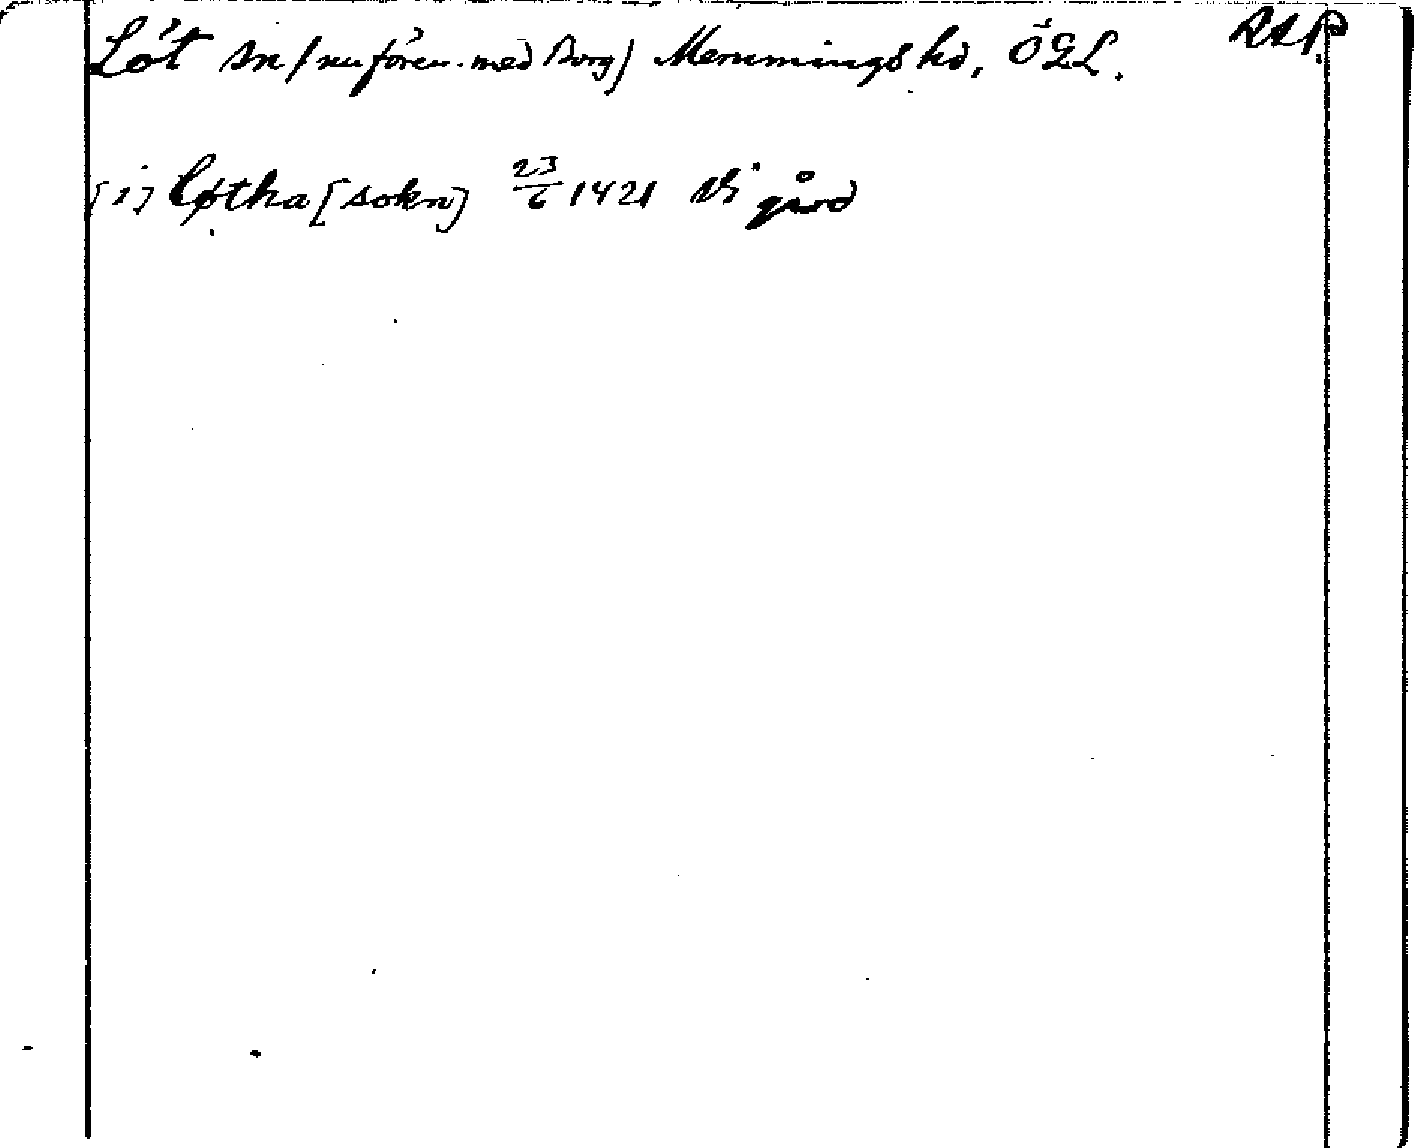 Löt sn (nu fören. med Borg) Memmings hd, ÖGL. RAP
[i] Løtha [sokn] 23/6 1421 Vi gård